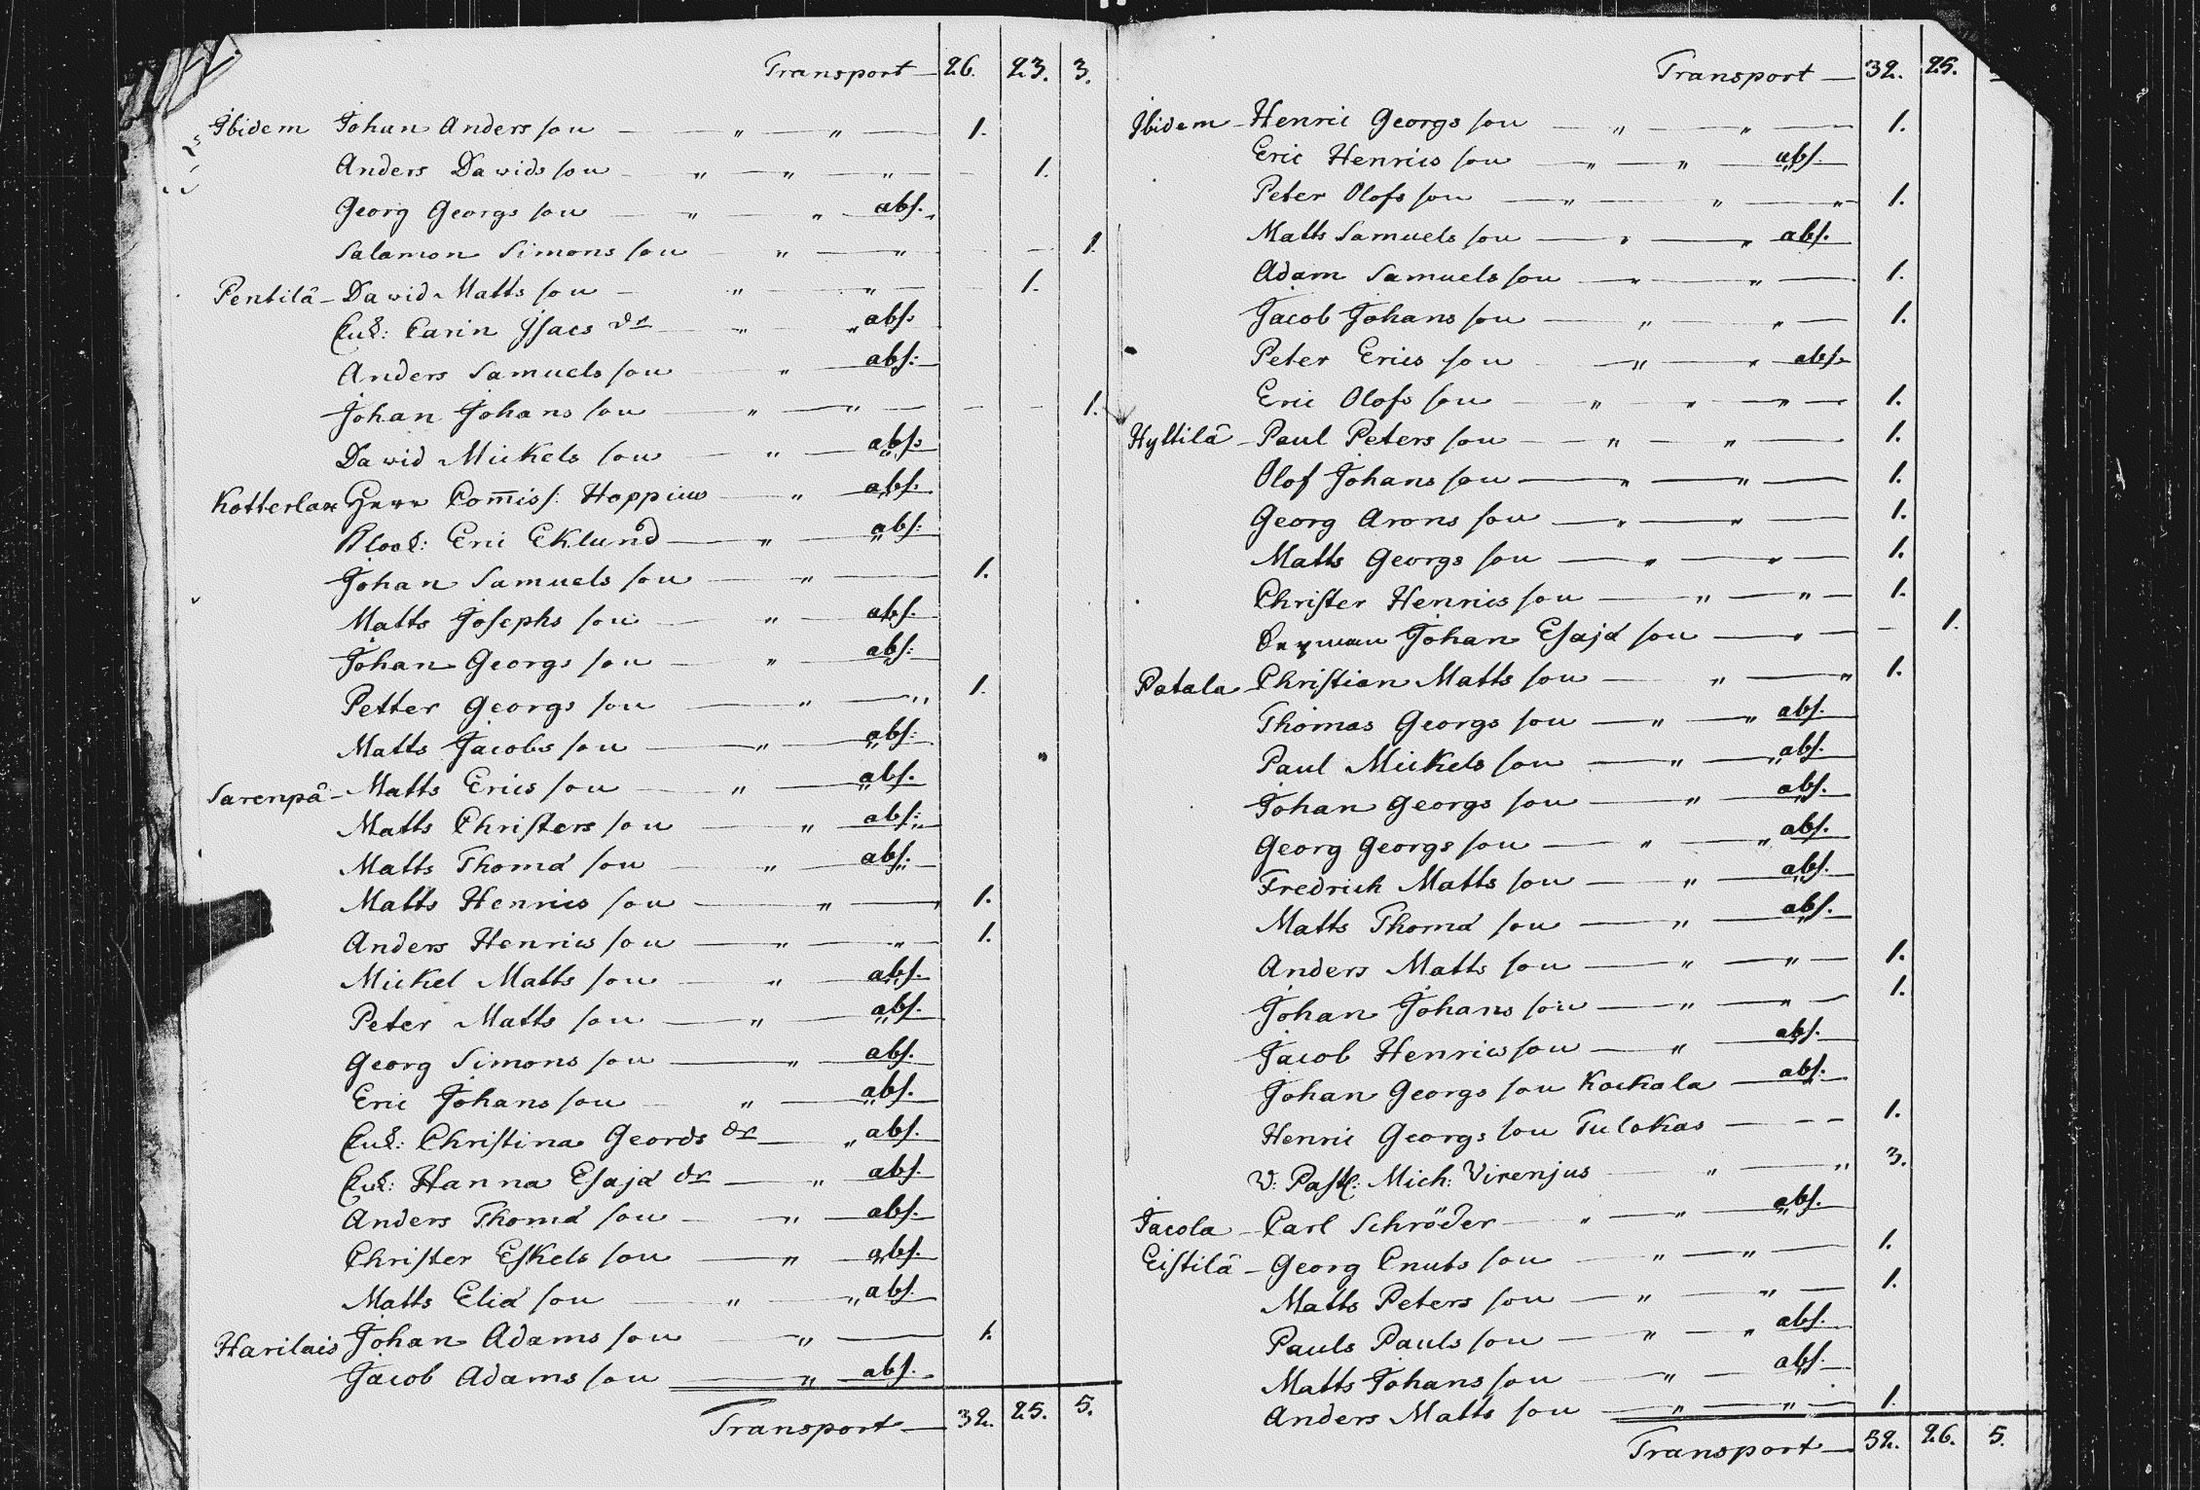 Transport — 26. 23. 3.
Ibidem Johan Anders son — " — " — 1.
Anders Dawids son — " — " — " — 1.
Georg Georgs son — " — " abs.
Salamon Simons son — " — " — 1.
Pentilä — Dawid Matts son — " — " — 1.
Enk: Carin Isacs dr — " — " abs:
Anders Samuels son — " abs:
Johan Johans son — " — " — 1.
Dawid Mickels son — " — abs:
Kotterlax Herr Com̄iss: Hoppius — " — abs:
Eric Eklund — " — abs:
Johan Samuels son — " — 1.
Matts Josephs son — " — abs.
Johan Georgs son — " — abs:
Petter Georgs son — " — " 1.
Matts Jacobs son — " — abs:
Sarenpä — Matts Erics son — " — abs.
Matts Christers son — " — abs:
Matts Thomæ son — " — abs:
Matts Henrics son — " — 1.
Anders Henrics son — " — " — 1.
Mickel Matts son — " — abs.
Peter Matts son — " — abs.
Georg Simons son — " — abs.
Eric Johans son — " — abs.
Enk: Christina Geords dr — " abs.
Enk: Hanna Esajæ dr — " — abs.
Anders Thomæ son — " — abs.
Christer Eskels son — " — abs.
Matts Eliæ son — " — " abs.
Harilais Johan Adams son — " — 1.
Jacob Adams son — " — abs.
Transport — 32. 25. 5.
Transport — 32. 25.
Ibidem — Henric Georgs son — " — " — 1.
Eric Henrics son — " — " abs.
Peter Olofs son — " — " — " 1.
Matts Samuels son — " — " abs.
Adam Samuels son — " — " — 1.
Jacob Johans son — " — " — 1.
Peter Erics son — " — " abs.
Eric Olofs son — " — " — " — 1.
Hyltilä — Paul Peters son — " — " — 1.
Olof Johans son — " — " — 1.
Georg Arons son — " — " — 1.
Matts Georgs son — " — " — 1.
Christer Henrics son — " — " — 1.
Johan Esajæ son — " — 1.
Patala — Christian Matts son — " — " 1.
Thomas Georgs son — " — " abs.
Paul Mickels son — " — " abs.
Johan Georgs son — " — abs.
Georg Georgs son — " — " abs.
Fredrich Matts son — " — abs.
Matts Thomæ son — " — abs.
Anders Matts son — " — " — 1.
Johan Johans son — " — " — 1.
Jacob Henrics son — " — abs.
Johan Georgs son Kockala — abs.
Henric Georgs son Tulokas — — — 1.
V: Past: Mich: Virenjus — " — " 3.
Jacola — Carl Schröder — " — " — abs.
Eistilä — Georg Cnuts son — " — " — 1.
Matts Peters son — " — " — 1.
Pauls Pauls son — " — " abs.
Matts Johans son — " — abs.
Anders Matts son — " — " — 1.
Transport — 52. 26. 5.